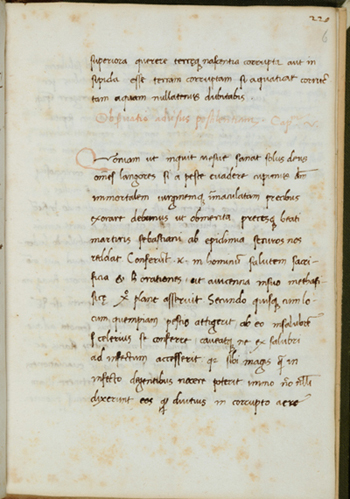 220
6
superiora querere terreq nascentia corrumpi aut in
sipida esse terram corruptam si aquatical corrup
tam aquam nullatenus dubitabis.
Obseruatio aduersus pestilentiam. Cap. V.
Quoniam ut inquit mesue sanat solus deus
omes langores si a peste euadere cupimus
immortalem uirginemq imaculatam precibus
exorare debemus ut obmerita precesq beati
martiris sebastiani ab epidimia securos nos
reddat in hominum salutem sacri
ficia et orationes ut auicenna in suo methafi
sice plane asseruit Secundo quisq cum lo
cum quempiam pestis attigerit ab eo insalubrem
celerius se conferre caueatq ne ex salubri
ad infectum accesserit sibi magis in
infecto degentibus nocere poterit immo
dixerunt eos q diutius in corrupto aere